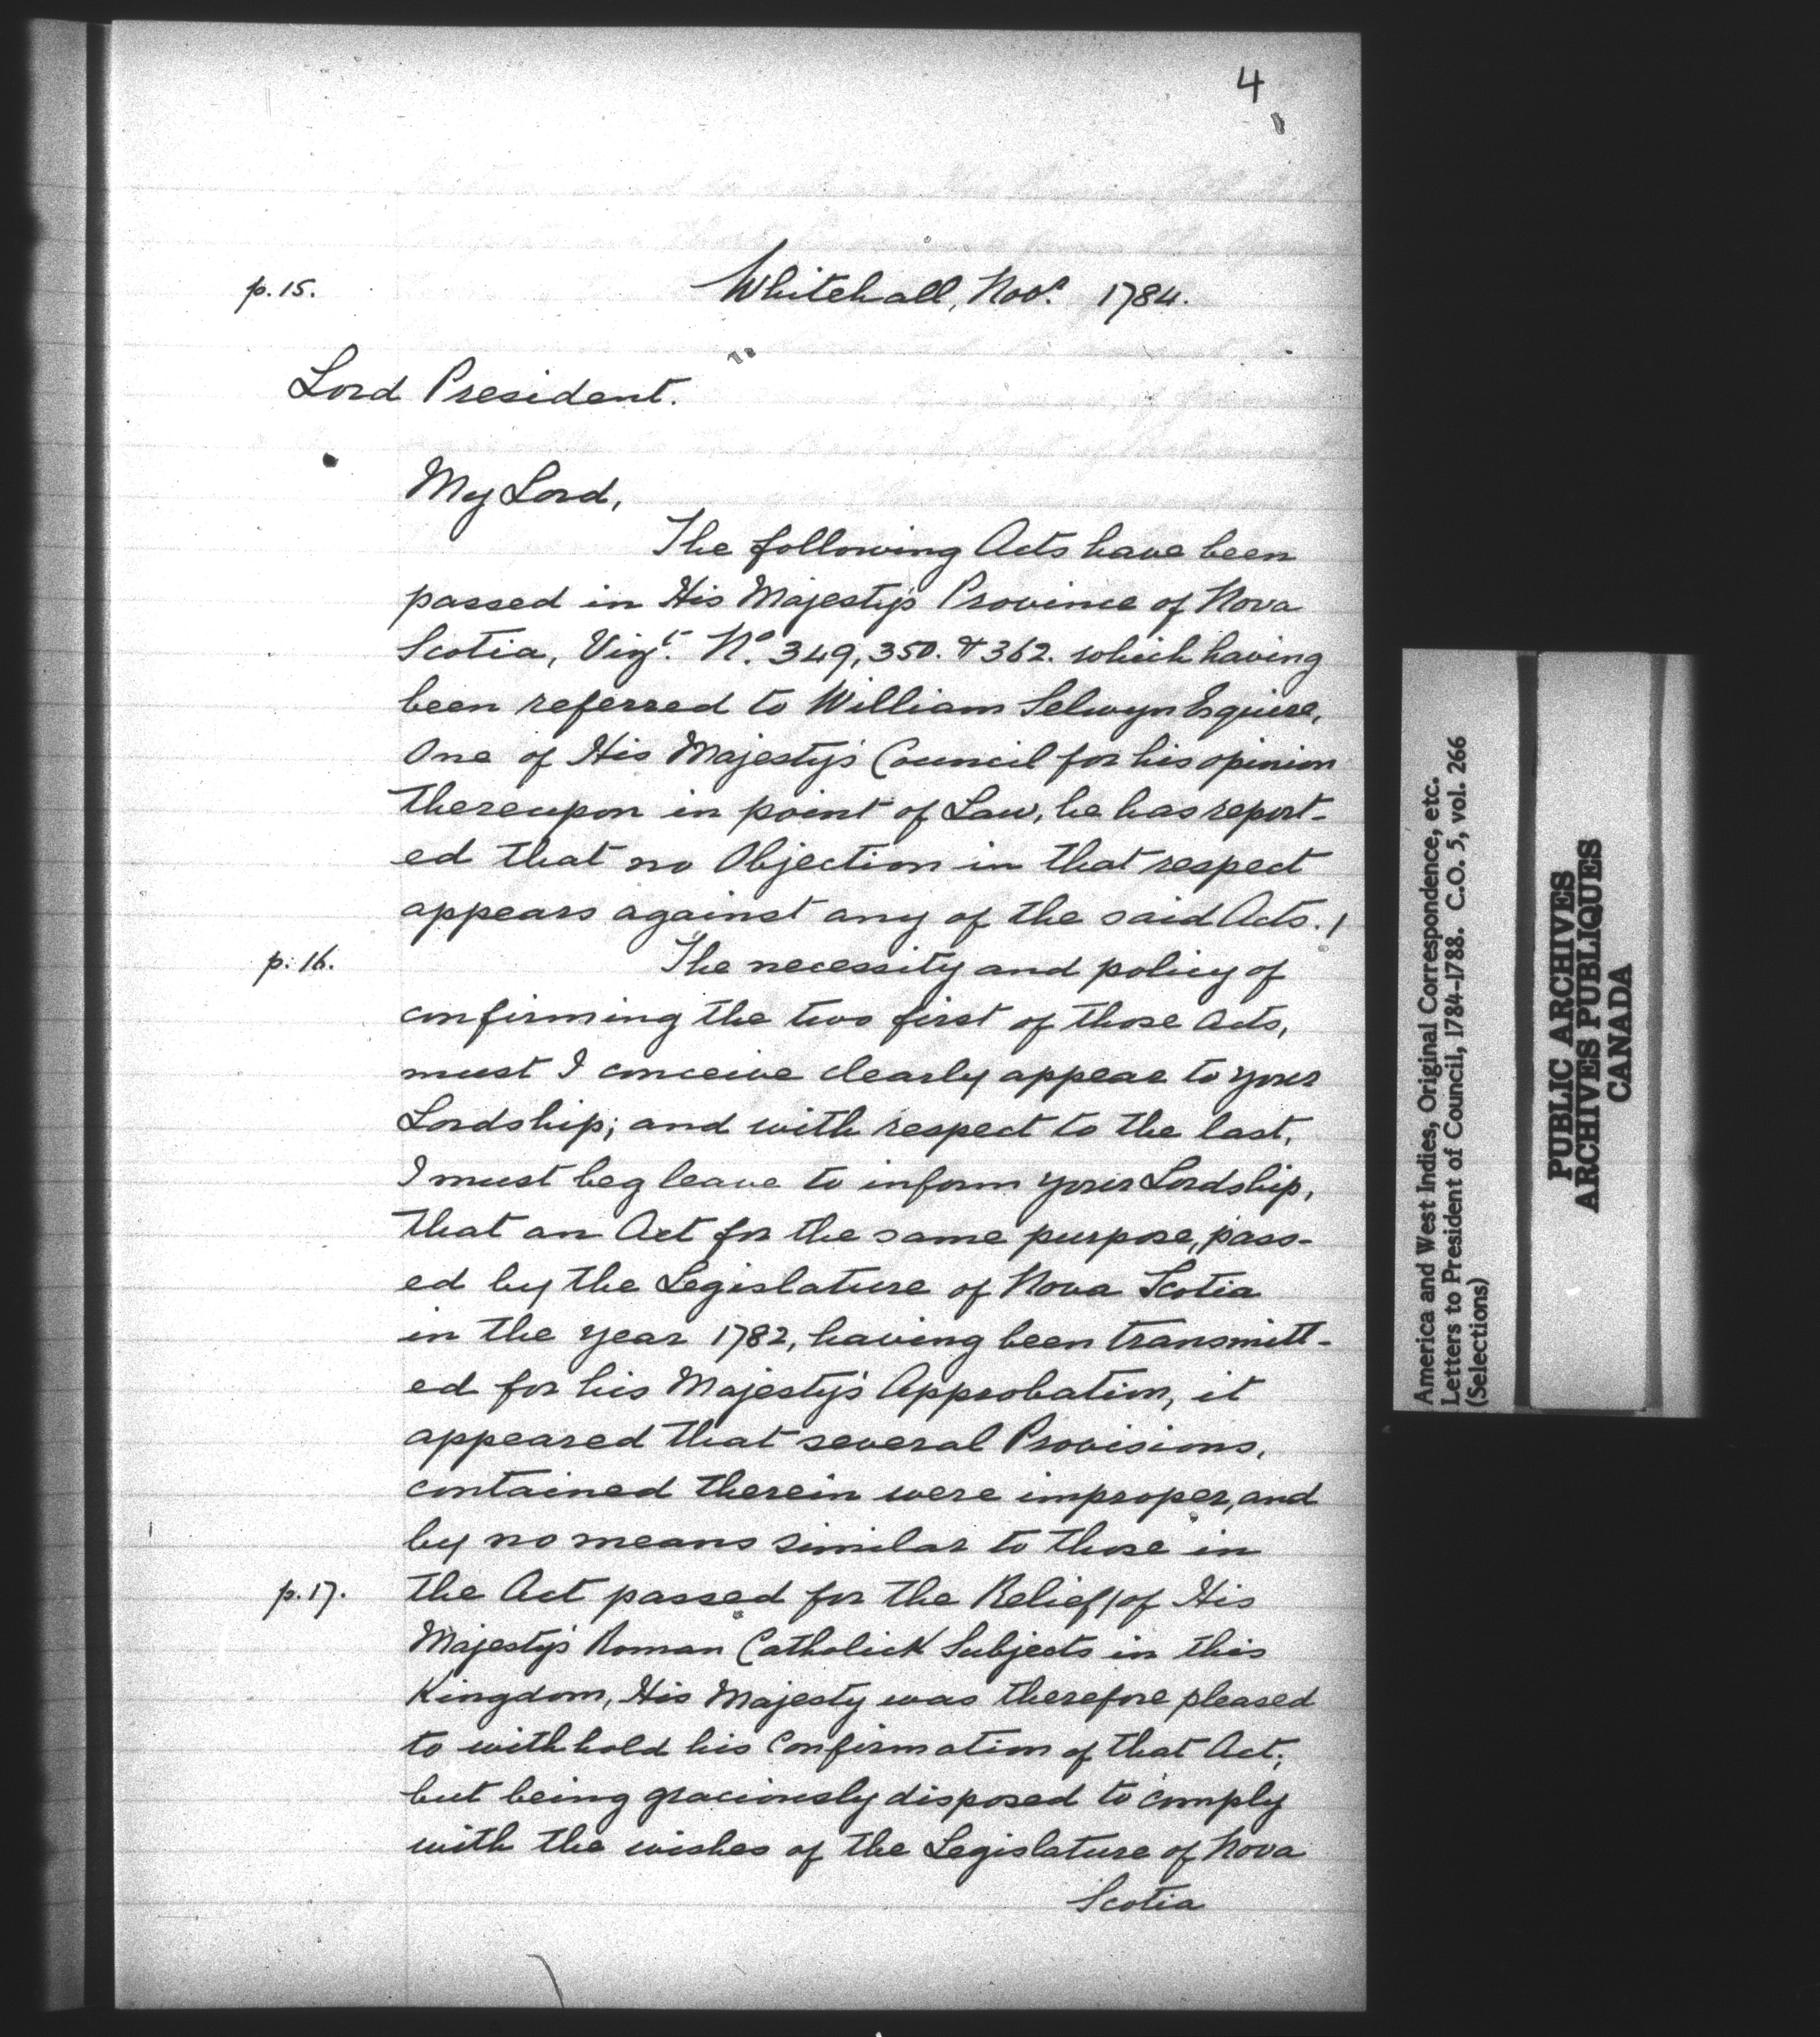 4
p. 15. Whitehall, Novr. 1784.
Lord President.
My Lord,
The following Acts have been
passed in His Majesty's Province of Nova
Scotia, Vizt. No. 349, 350. & 362. which having
been referred to William Selwyn Esquire,
One of His Majesty's Council for his opinion
thereupon in point of Law, he has report-
ed that no Objection in that respect
appears against any of the said Acts. /
p. 16. The necessity and policy of
confirming the two first of those Acts,
must I conceive clearly appear to your
Lordship; and with respect to the last,
I must beg leave to inform your Lordship,
that an Act for the same purpose, pass-
ed by the Legislature of Nova Scotia
in the year 1782, having been transmitt-
ed for his Majesty's Approbation, it
appeared that several Provisions,
contained therein were improper, and
by no means similar to those in
p. 17. the Act passed for the Relief / of His
Majesty's Roman Catholick Subjects in this
Kingdom, His Majesty was therefore pleased
to withhold his Confirmation of that Act;
but being graciously disposed to comply
with the wishes of the Legislature of Nova
Scotia
America and West Indies, Original Correspondence, etc.
Letters to President of Council, 1784-1788. C.O. 5, vol. 266
(Selections)
PUBLIC ARCHIVES
ARCHIVES PUBLIQUES
CANADA